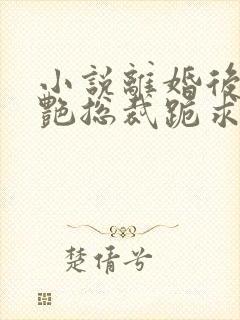 小說離婚後
艷總裁跪求
楚倩兮